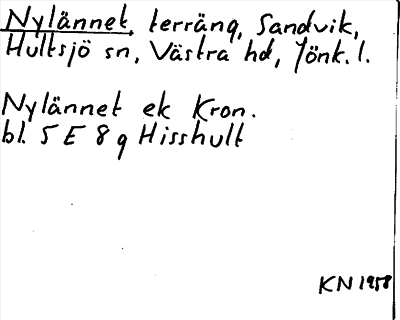 Nylännet, terräng, Sandvik,
Hultsjö sn, Västra hd, Jönk. l.
Nylännet ek Kron.
bl. 5 E 8 g Hisshult
KN 1958